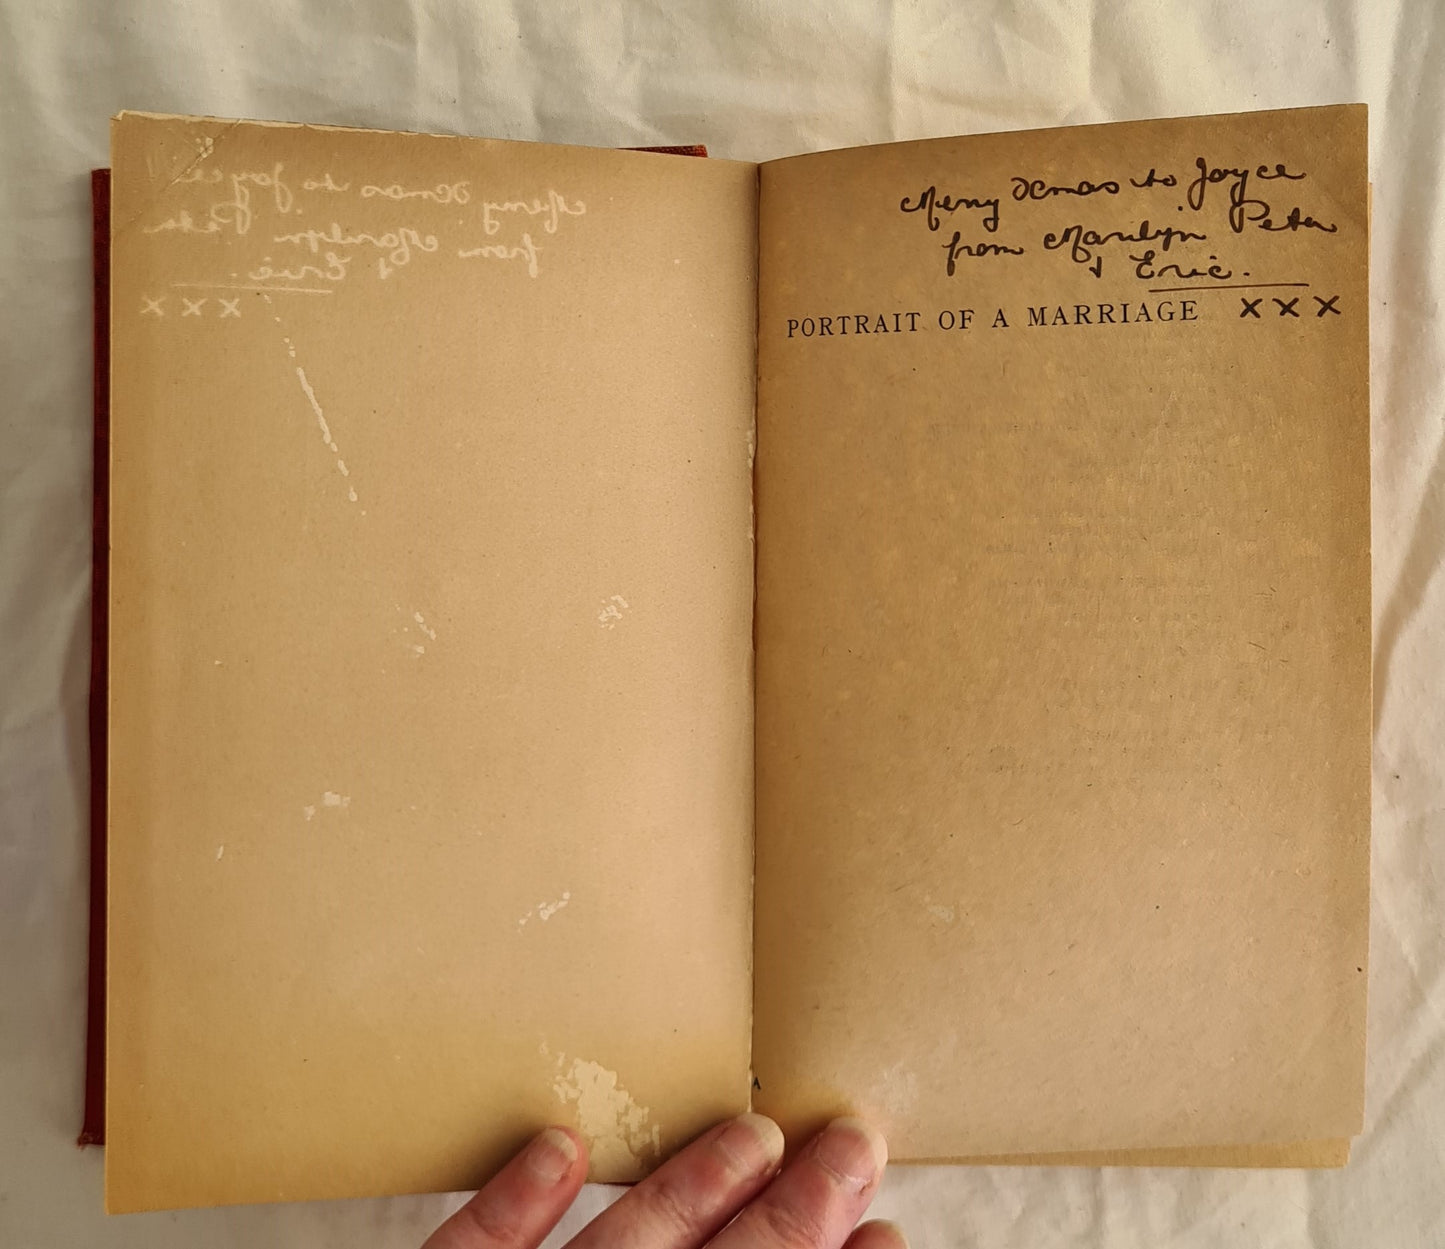 Merry Xmas to Joyce
from Marilyn Peter
& Eric.
PORTRAIT OF A MARRIAGE x x x
A